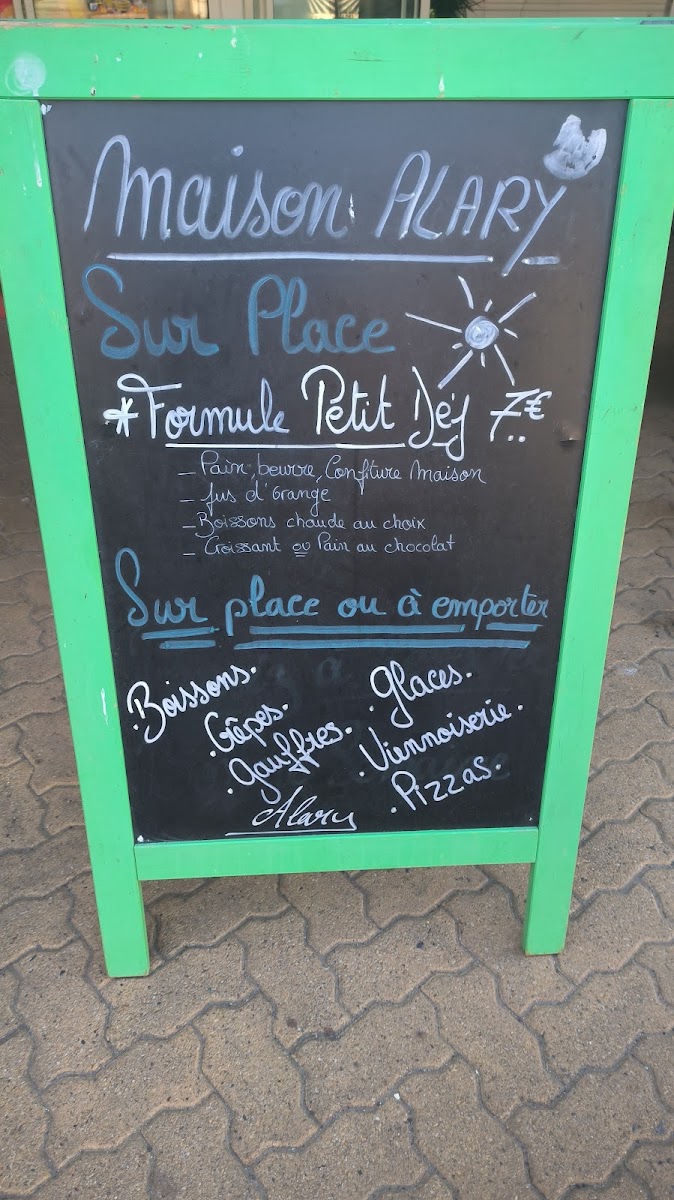 Maison ALARY
Sur Place
*Formule Petit Déj 7€
- Pain, beurre, Confiture Maison
- Jus d'Orange
- Boissons chaude au choix
- Croissant ou Pain au chocolat
Sur place ou à emporter
.Boissons.
.Crêpes.
.Gauffres.
.Glaces.
.Viennoiserie.
.Pizzas.
Alary